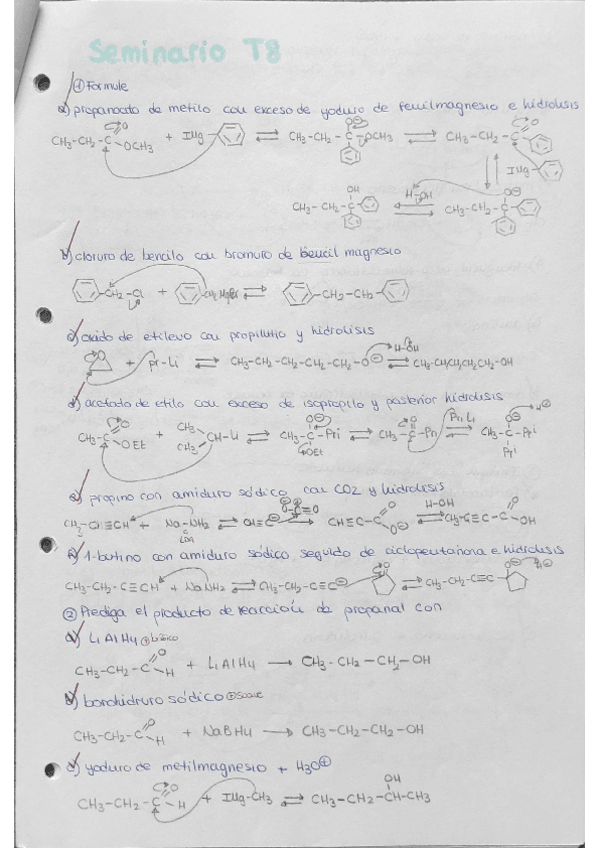 Seminario T8
① Formule
a) propanoato de metilo con exceso de yoduro de fenilmagnesio e hidrolisis
CH3-CH2-C O OCH3 + IMg- ⇌ CH3-CH2-C-OCH3 ⇌ CH3-CH2-C O
IMg-
OH H-OH O⊖
CH3-CH2-C- ⇌ CH3-CH2-C-
b) cloruro de bencilo con bromuro de bencil magnesio
CH2-Cl + CH2MgBr ⇌ CH2-CH2-
c) oxido de etileno con propillitio y hidrolisis
H-OH
O + pr-Li ⇌ CH3-CH2-CH2-CH2-CH2-O⊖ ⇌ CH3-CH2CH2CH2CH2-OH
d) acetato de etilo con exceso de isopropilo y posterior hidrolisis
CH3-C O OEt + CH3 CH3 CH-Li ⇌ CH3-C-Pri OEt ⇌ CH3-C- ⇌ CH3-C-Pri Pri
e) propino con amiduro sódico con CO2 y hidrolisis
H-OH
+ Na-NH2 ⇌ CH≡C⊖ → CH≡C-C O O⊖ ⇌ O OH
f) 1-butino con amiduro sódico seguido de ciclopentanona e hidrolisis
CH3-CH2-C≡CH + NaNH2 ⇌ CH3-CH2-C≡C⊖ O ⇌ CH3-CH2-C≡C-
② Prediga el producto de reacción de propanal con
a) LiAlH4
CH3-CH2-C O H + LiAlH4 → CH3-CH2-CH2-OH
b) borohidruro sódico ⊕suave
CH3-CH2-C O H + NaBH4 → CH3-CH2-CH2-OH
c) yoduro de metilmagnesio + H3O⊕
OH
CH3-CH2-C O H + IMg-CH3 ⇌ CH3-CH2-CH-CH3